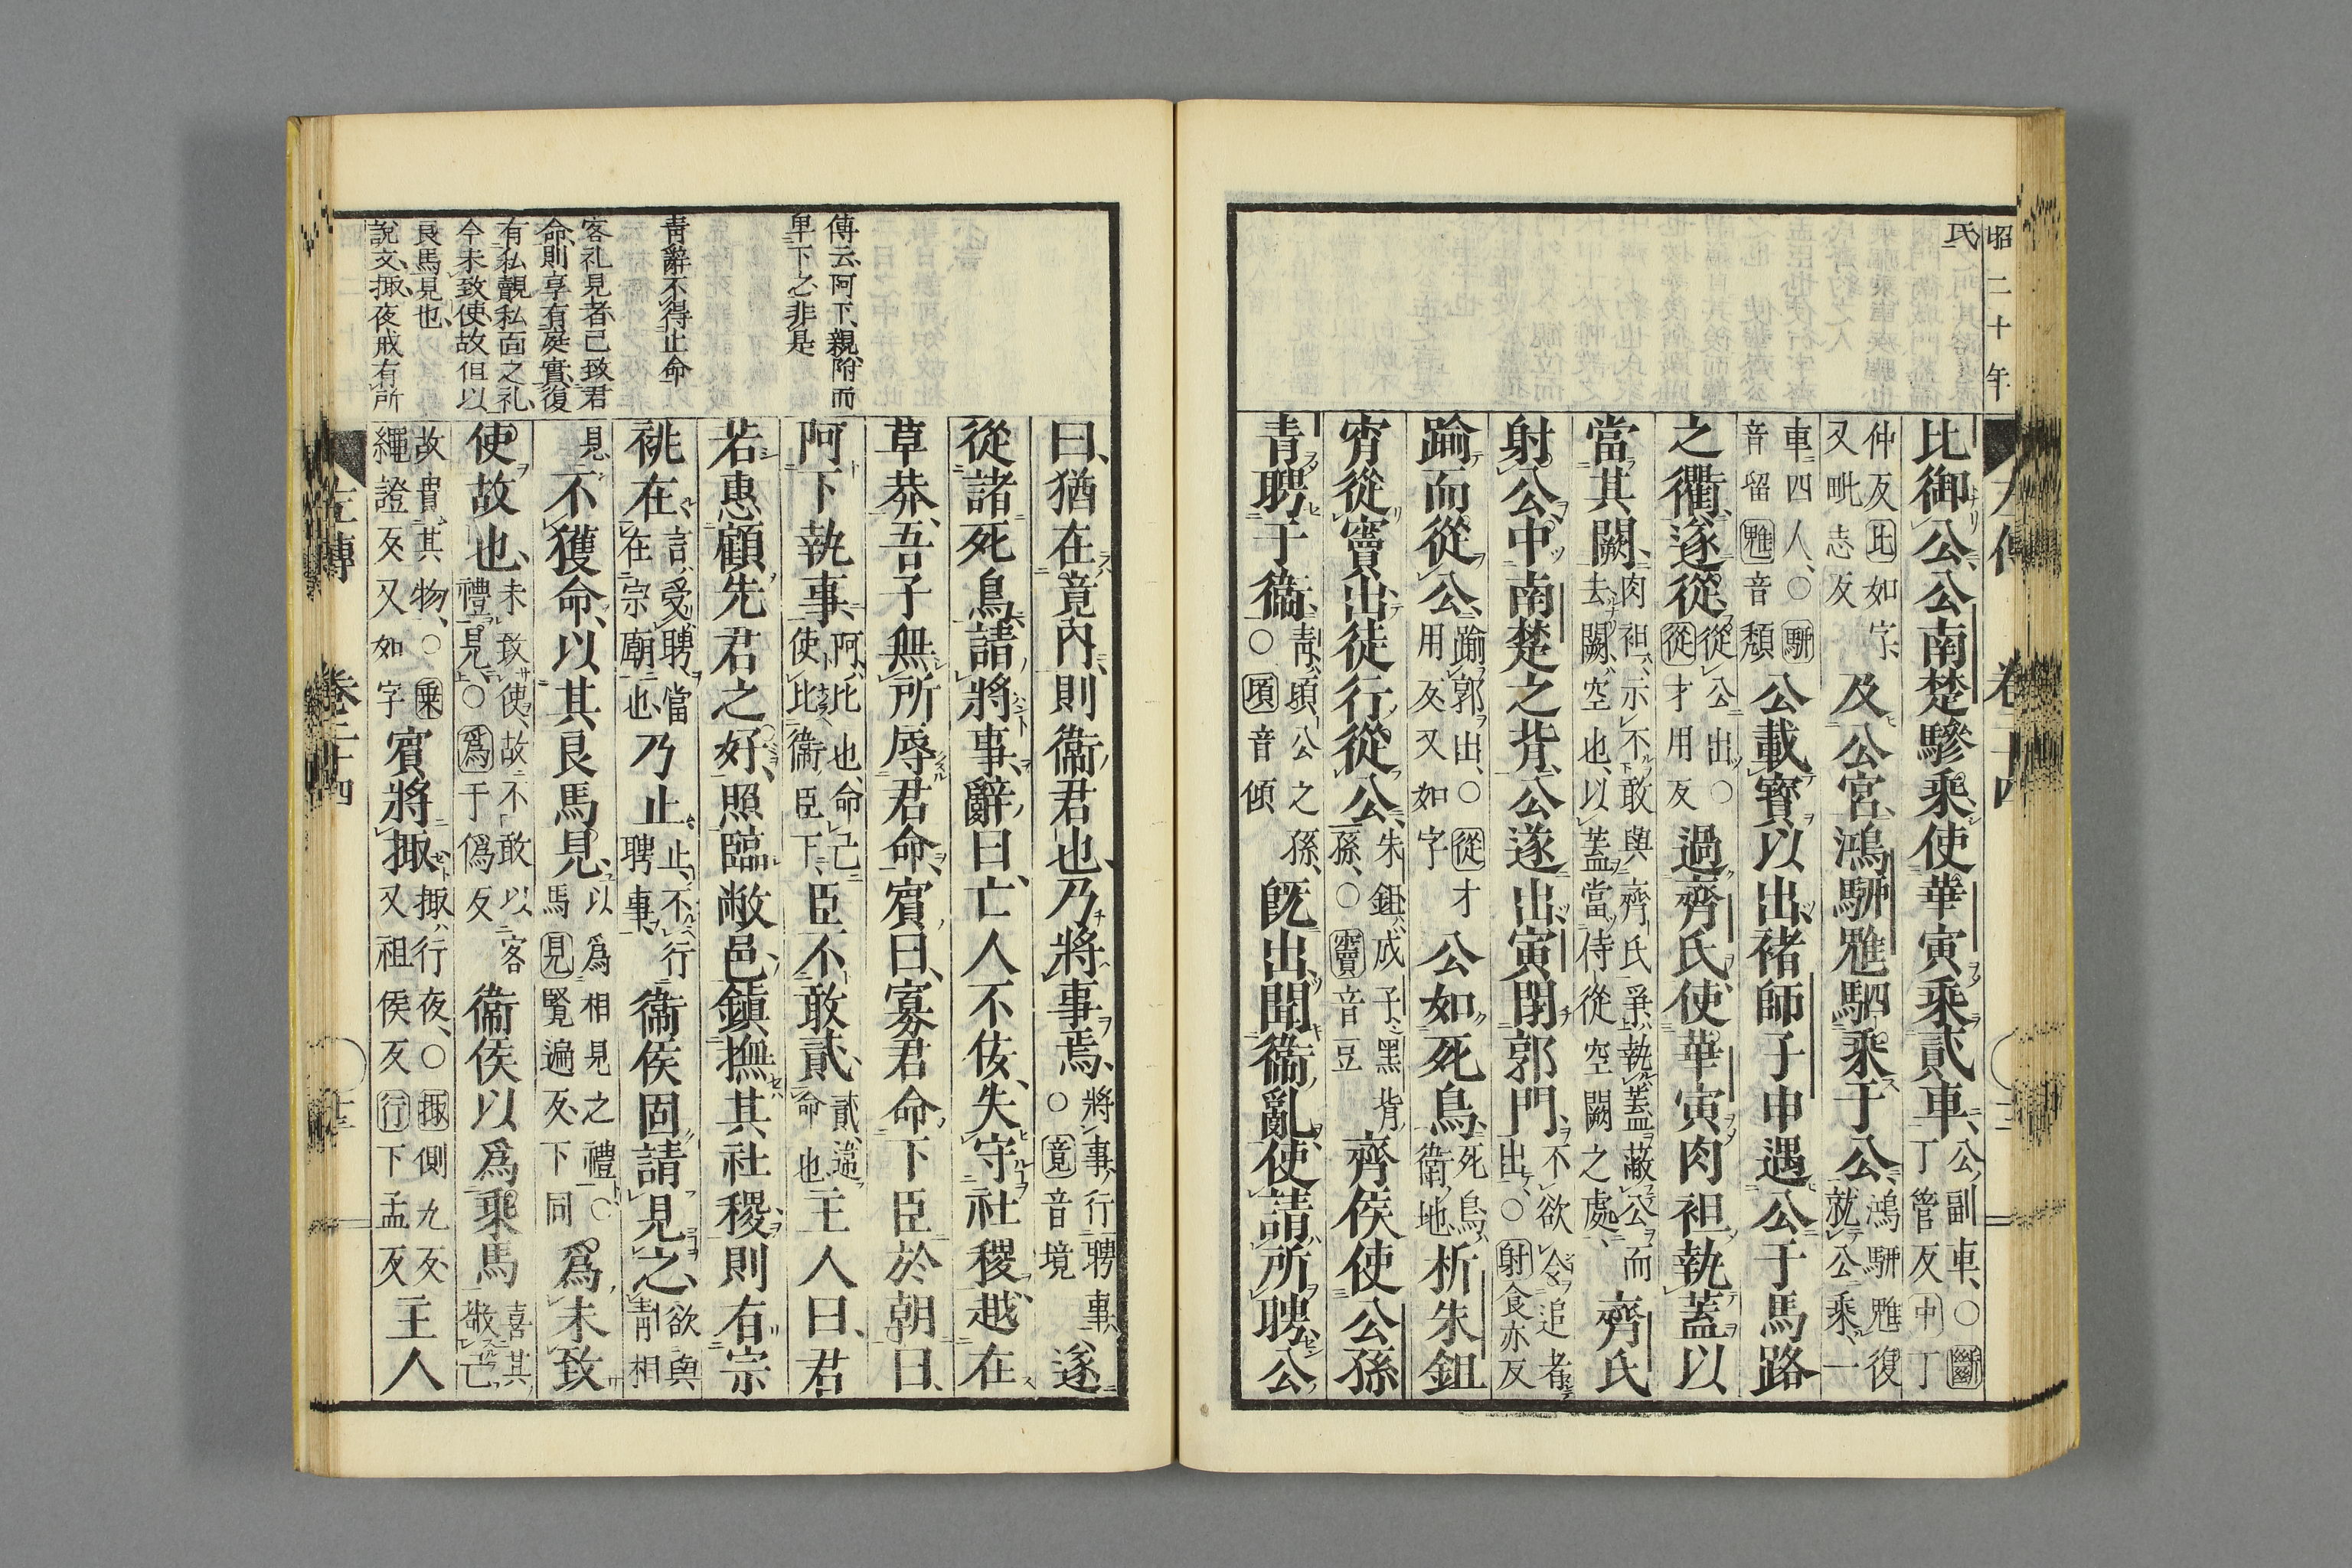 昭二十年
氏
比御公公南楚驂乘使華寅乘貳車公副車○斷丁管反中丁
仲反比如字又毗志反及公宮鴻駵魋駟乘于公鴻駵魋復就公乘一
車四人○駵音留魋音頹公載寳以出褚師子申遇公于馬路
之衢遂從從公出○從才用反過齊氏使華寅肉袒執蓋以
當其闕肉袒示不敢與齊氏爭執蓋蔽公而去闕空也以蓋當侍從空闕之處齊氏
射公中南楚之背公遂出寅閉郭門不欲令追者出○射食亦反
踰而從公踰郭出○從才用反又如字公如死鳥死鳥衛地析朱鉏
宵從竇出徒行從公朱鉏成子黑背孫○竇音豆齊侯使公孫
青聘于衞靑頃公之孫○頃音傾旣出聞衞亂使請所聘公
曰猶在竟內則衞君也乃將事焉將事行聘事○竟音境遂
從諸死鳥請將事辭曰亡人不佞失守社稷越在
草莽吾子無所辱君命賓曰寡君命下臣於朝曰
阿下執事阿比也命己使比衞臣下臣不敢貳貳違命也主人曰君
若惠顧先君之好照臨敝邑鎮撫其社稷則有宗
祧在言受聘當在宗廟也乃止止不行聘事衞侯固請見之欲與靑相
見不獲命以其良馬見以爲相見之禮○馬見賢遍反下同爲未致
使故也未致使故不敢以客禮見○爲于僞反衞侯以爲乘馬喜其敬己
故貴其物○乘繩證反又如字賓將掫掫行夜○掫側九反又祖侯反行下孟反主人
傳云阿下親附而
卑下之非是
靑辭不得止命
客礼見者己致君
命則享有庭實復
有私覿私面之礼
今未致使故但以
良馬見也
說文掫夜戒有所
左傳 卷二十四 十三